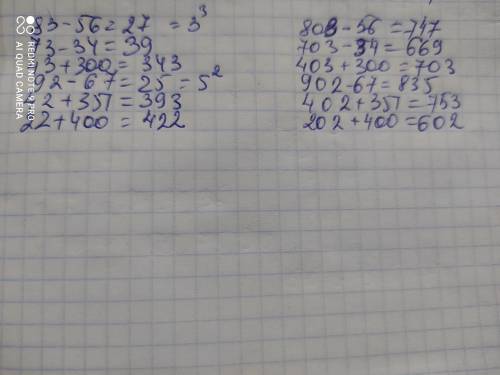 83-56=27 =3³
73-34=39
3+300=343
92-67=25=5²
2+351=393
22+400=422
803-56=747
703-34=669
403+300=703
902-67=835
402+351=753
202+400=602
REDMI NOTE 9 PRO
AI QUAD CAMERA